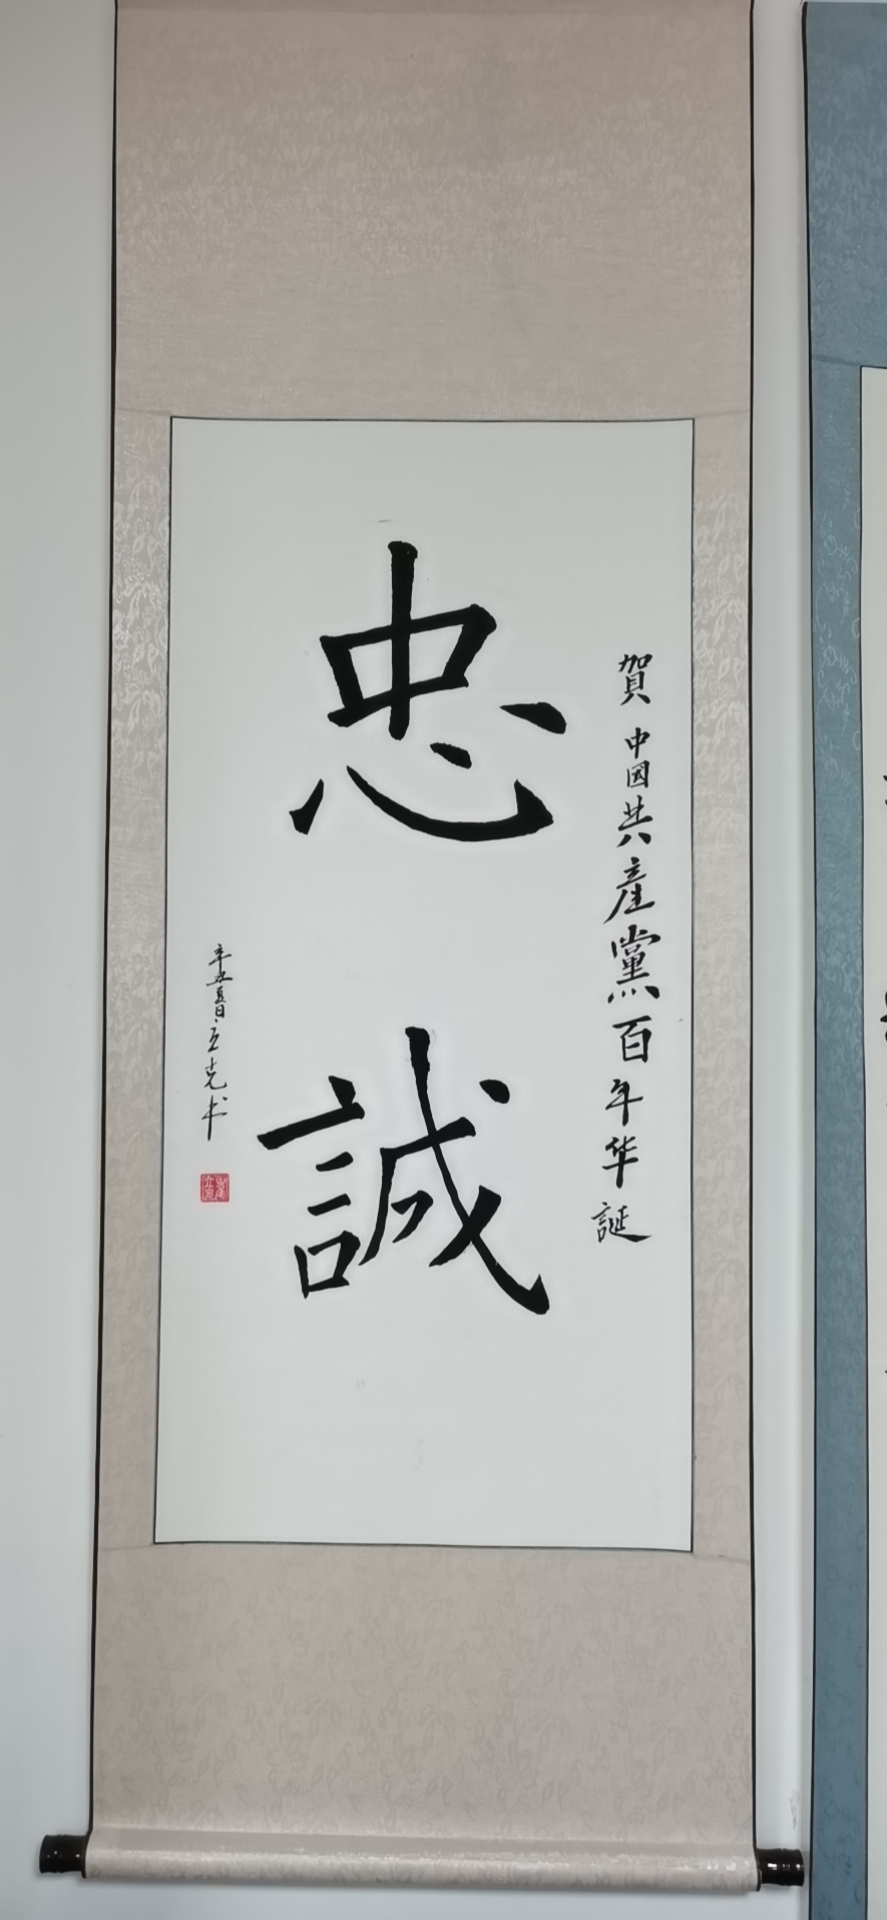 賀中國共產黨百年华誕
忠誠
辛丑夏日立克书